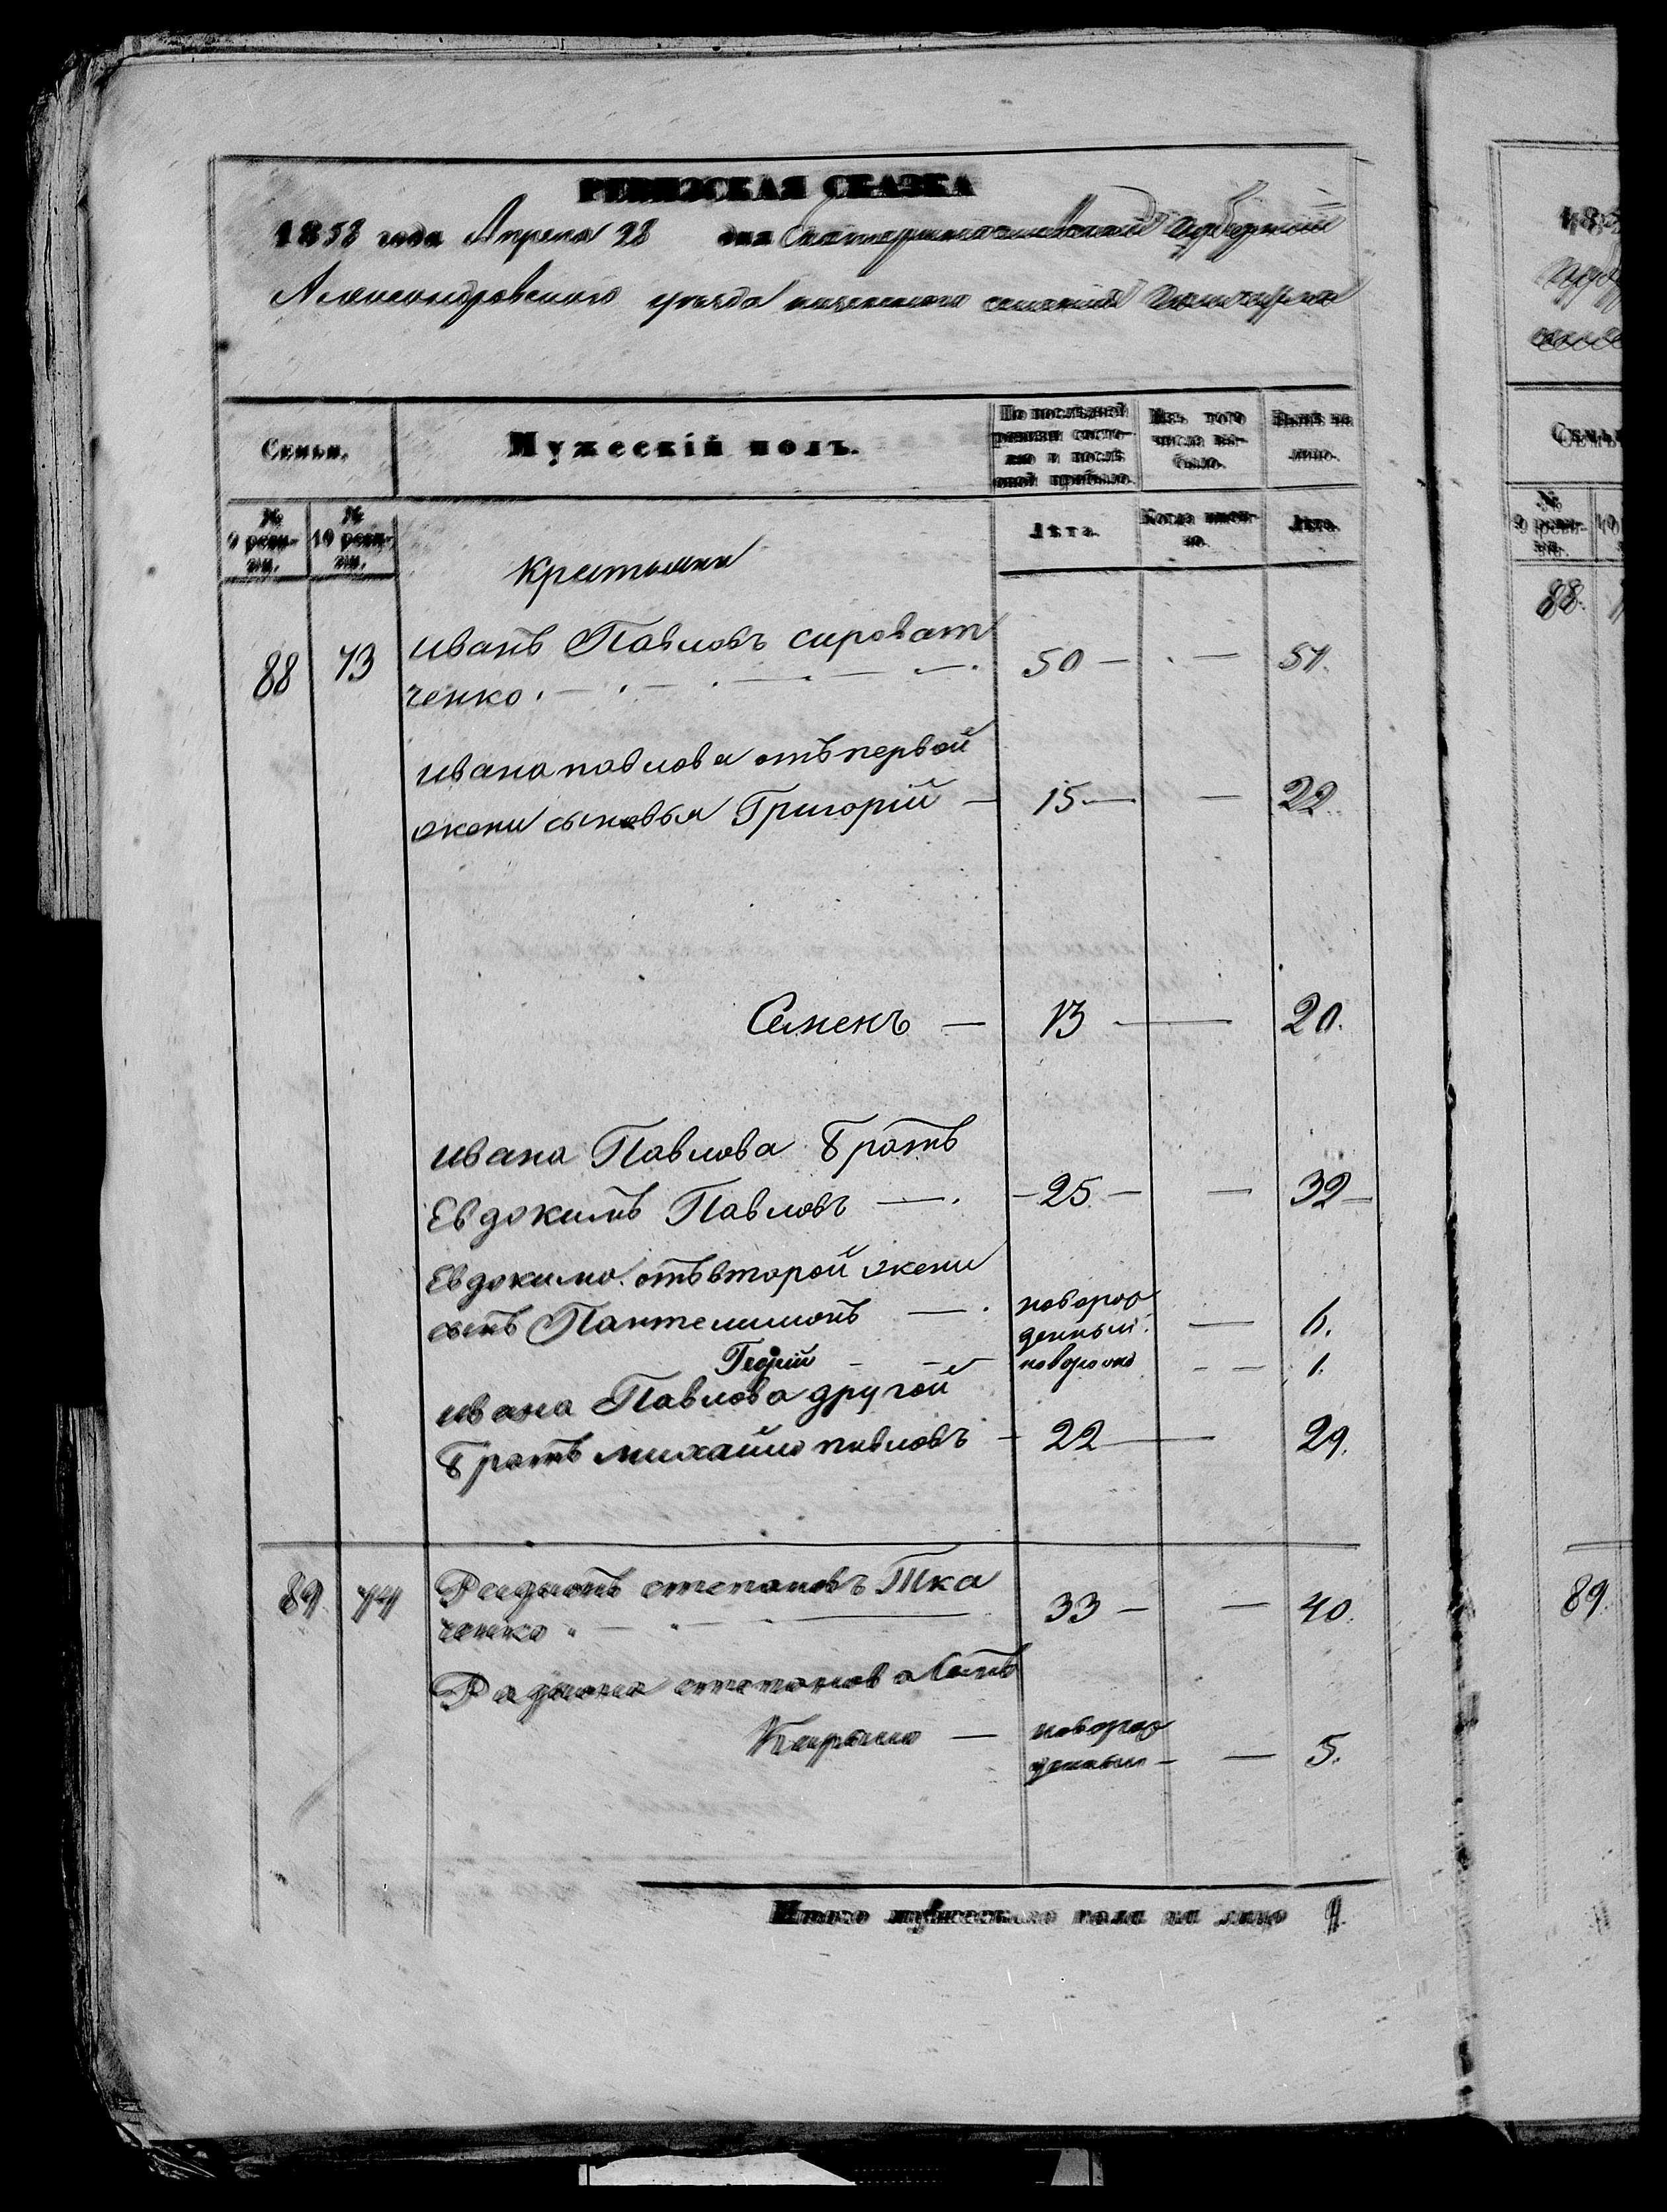 РЕВИЗСКАЯ СКАЗКА
1858 года Апреля 28 дня Екатеринославской Губернии
Александровского уезда казенного селения
Семьи.
Мужескій полъ.
По последней ревизіи состояло и после оной прибыло.
Изъ того числа выбыло.
Ныне на лицо.
№ 9 ревизіи.
№ 10 ревизіи.
Лѣта.
Когда именно.
Лѣта.
Крестьяне
88 73 иванъ Павловъ сироват 50 — . — 57.
ченко . — . — . — — —.
ивана павлова отъ первой
жены сыновья Григорій — 15 — — 22.
Семенъ — 13 — 20.
ивана Павлова братъ
Евдокимъ Павловъ — . — 25 — — 32 —
Евдокима отъ второй жены
сынъ Пантелимонъ — . новорож
денный. — 6.
Георгій — — новорожд — — 1.
ивана Павлова другой
братъ михайло павловъ — 22 — 29.
89. 74 Радионъ степановъ Тка 33 — — 40.
ченко . — . —
Радиона степанова Сынъ
Кирыло — новорож
денный — — 5.
Итого мужескаго пола на лицо
88.
89.